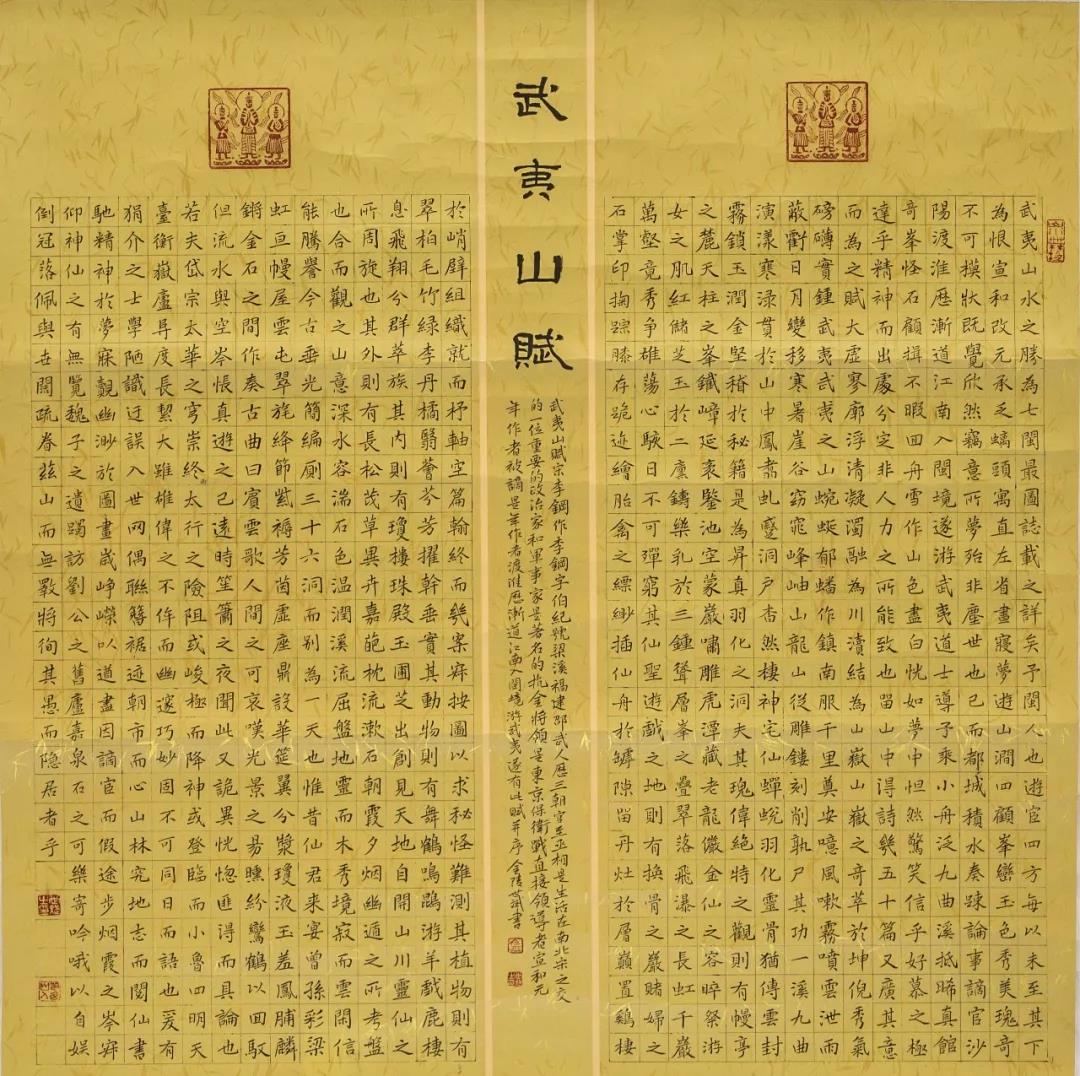 武夷山水之勝為七閩最圖誌載之詳矣予閩人也遊宦四方每以未至其下
為恨宣和改元承乏螭頭寓直左省晝寢夢遊山澗四顧峯巒玉色秀美瑰奇
不可模狀既覺欣然竊意所夢殆非塵世也已而都城積水奏踈論事謫官沙
陽渡淮歷漸道江南入閩境遂游武夷道士導予乘小舟泛九曲溪抵晞真館
奇峯怪石顧揖不暇回舟雪作山色盡白恍如夢中怛然驚笑信乎好慕之極
達乎精神而出處兮定非人力之所能致也留山中得詩幾五十篇又廣其意
而為之賦大虛寥廓浮清凝濁融為川瀆結為山嶽山嶽之奇萃於坤倪秀氣
磅礴實鍾武夷武夷之山蜿蜒郁蟠作鎮南服千里奠安噫風嗽霧噴雲泄雨
蔽虧日月變移寒暑崖谷窈窕峰岫山龍山從雕鏤刻削孰尸其功一溪九曲
演漾寒渌貫於山中鳳翥虬蹙洞戶杳然棲神宅仙蟬蛻羽化靈骨猶傳雲封
霧鎖玉潤金堅稽於秘籍是為昇真羽化之洞夫其瑰偉絕特之觀則有幔亭
之麓天柱之峯鐵嶂延袤鑒池空蒙巖嘯雕虎潭藏老龍儼金仙之容晬祭游
女之肌紅儲芝玉於二廩鑄樂乳於三鍾聳層峯之疊翠落飛瀑之長虹千巖
萬壑竟秀争雄蕩心駭目不可殫窮其仙聖遊戲之地則有換骨之巖賭婦之
石掌印掬踪膝存跪迹繪胎禽之縹緲插仙舟於罅隙留丹灶於層巔置鷄棲
武夷山賦
武夷山賦宗李鋼作李鋼字伯紀號梁溪福建邵武人歷三朝官至丞相是生活在南北宋之交
的一位重要的政治家和軍事家是著名的抗金將領是東京保衛戰直接領導者宣和元
年作者被謫是年作者渡淮歷漸道江南入閩境游武夷遂有此賦并序金陵世萍書
於峭壁組織就而杼軸空篇翰終而幾案寂按圖以求秘怪難測其植物則有
翠柏毛竹綠李丹橘翳薈芬芳擢幹垂實其動物則有舞鶴鳴鷳游羊戲鹿棲
息飛翔兮群萃族其內則有瓊樓珠殿玉圃芝出創見天地自開山川靈仙之
所周旋也其外則有長松茂草異卉嘉葩枕流漱石朝霞夕烟幽遁之所考盤
也合而觀之山意深水容湍石色温潤溪流屈盤地靈而木秀境寂而雲閑信
能騰譽今古垂光簡編厠三十六洞而别為一天也惟昔仙君来宴曾孫彩梁
虹亘幔屋雲屯翠旄絳節紫褥芳茵虛座鼎設華筵翼兮漿瓊液玉羞鳳脯麟
鏘金石之間作奏古曲曰賓雲歌人間之可哀嘆光景之易曛紛鸞鶴以回馭
但流水與空岑悵真遊之已遠時笙簫之夜聞此又詭異恍惚匪得而具論也
若夫岱宗太華之穹崇終太行之險阻或峻極而降神或登臨而小魯四明天
臺衡嶽廬阜度長絜大雖雄偉之不侔而幽邃巧妙固不可同日而語也爰有
狷介之士學陋識迂誤入世网偶聯簪裾迹朝市而心山林究地志而閱仙書
馳精神於夢寐覿幽渺於圖畫歲崢嶸以道盡因謫宦而假途步烟霞之岑寂
仰神仙之有無覽魏子之遺躅訪劉公之舊廬嘉泉石之可樂寄吟哦以自娱
倒冠落佩與世闊疏眷茲山而無斁將徇其愚而隐居者乎